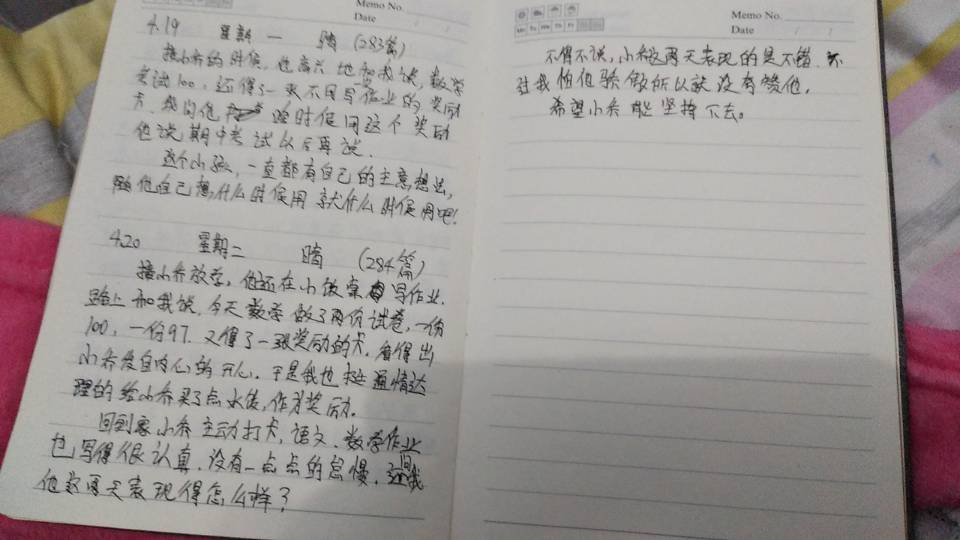 Memo No.
Date
4.19 星期一 晴 (283篇)
接小乔的时候,他高兴地和我说,数学
考试100,还得了一张不用写作业的奖励
卡,我问他 啥时候用这个奖励
他说期中考试以后再说.
这个小孩,一直都有自己的主意,想出,
随他自己想,什么时候用就什么时候用吧!
4.20 星期二 晴 (284篇)
接小乔放学,他还在小饭桌写作业.
路上和我说,今天数学做了两份试卷,一份
100,一份97.又得了一张奖励的卡.看得出
小乔发自内心的开心.于是我也挺通情达
理的给小乔买了点水后,作为奖励.
回到家小乔主动打卡,语文.数学作业
也写得很认真.没有一点点的怠慢.还问我
他这两天表现得怎么样?
Mo Tu We Th Fr
Memo No.
Date / /
不得不说,小乔这两天表现的是不错.不
过我怕他骄傲所以就没有夸他.
希望小乔能坚持下去。